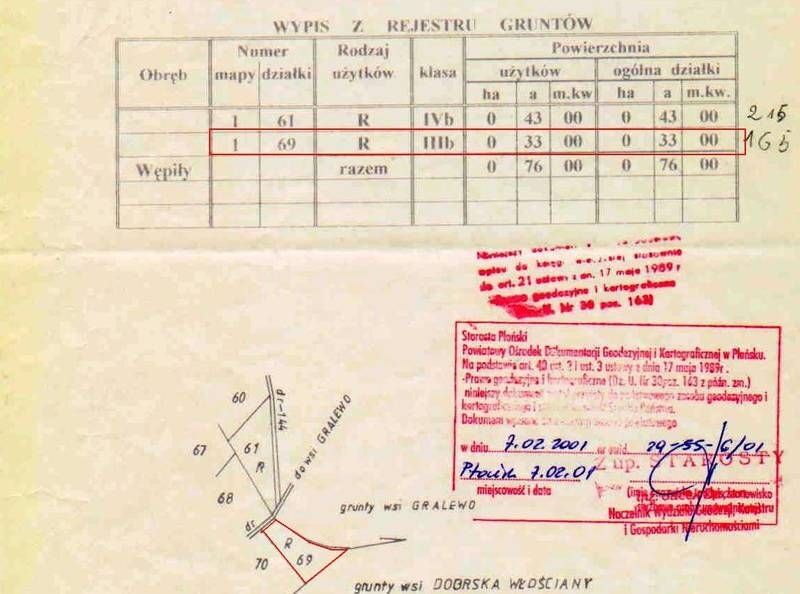 WYPIS Z REJESTRU GRUNTÓW
Obręb Numer mapy działki Rodzaj użytków klasa Powierzchnia
użytków ogólna działki
ha a m.kw ha a m.kw.
1 61 R IVb 0 43 00 0 43 00 215
1 69 R IIIb 0 33 00 0 33 00 165
Wępiły razem 0 76 00 0 76 00
do art. 21 ustawy z dn. 17 maja 1989 r
geodezyjne i kartograficzne
Nr 30 poz. 163)
Starosta Płoński
Powiatowy Ośrodek Dokumentacji Geodezyjnej i Kartograficznej w Płońsku.
Na podstawie art. 40 ust. 3 ustawy z dnia 17 maja 1989r.
-Prawo geodezyjne i kartograficzne (Dz. U. Nr 30 poz. 163 z późn. zm.)
niniejszy dokument zasobu geodezyjnego i
kartograficznego
Dokument
w dniu 7.02.2001
Płońsk 7.02.01
Z up. STAROSTY
miejscowość i data
Naczelnik Wydziału Geodezji, Katastru
i Gospodarki Nieruchomościami
60
dr-144
do wsi GRALEWO
67
61
R
68
grunty wsi GRALEWO
dr.
R
70
69
grunty wsi DOBRSKA WŁOŚCIANY